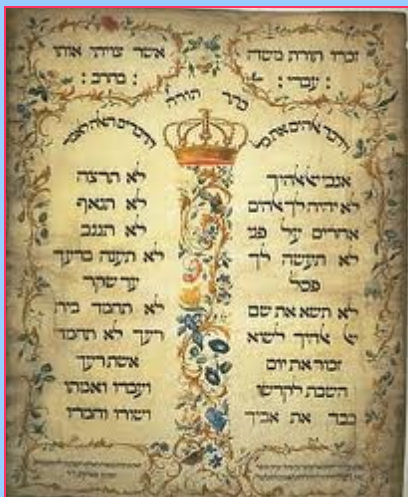 זכרו תורת משה
עבדי :
אשר צויתי אותו
בחרב :
כתר תורה
וידבר אלהים את כל
הדברים האלה לאמר
אנכי יי אלהיך
לא יהיה לך אלהים
אחרים על פני
לא תעשה לך
פסל
לא תשא את שם
יי אלהיך לשוא
זכור את יום
השבת לקדשו
כבד את אביך
לא תרצח
לא תנאף
לא תגנב
לא תענה ברעך
עד שקר
לא תחמד בית
רעך לא תחמד
אשת רעך
ועבדו ואמתו
ושורו וחמרו